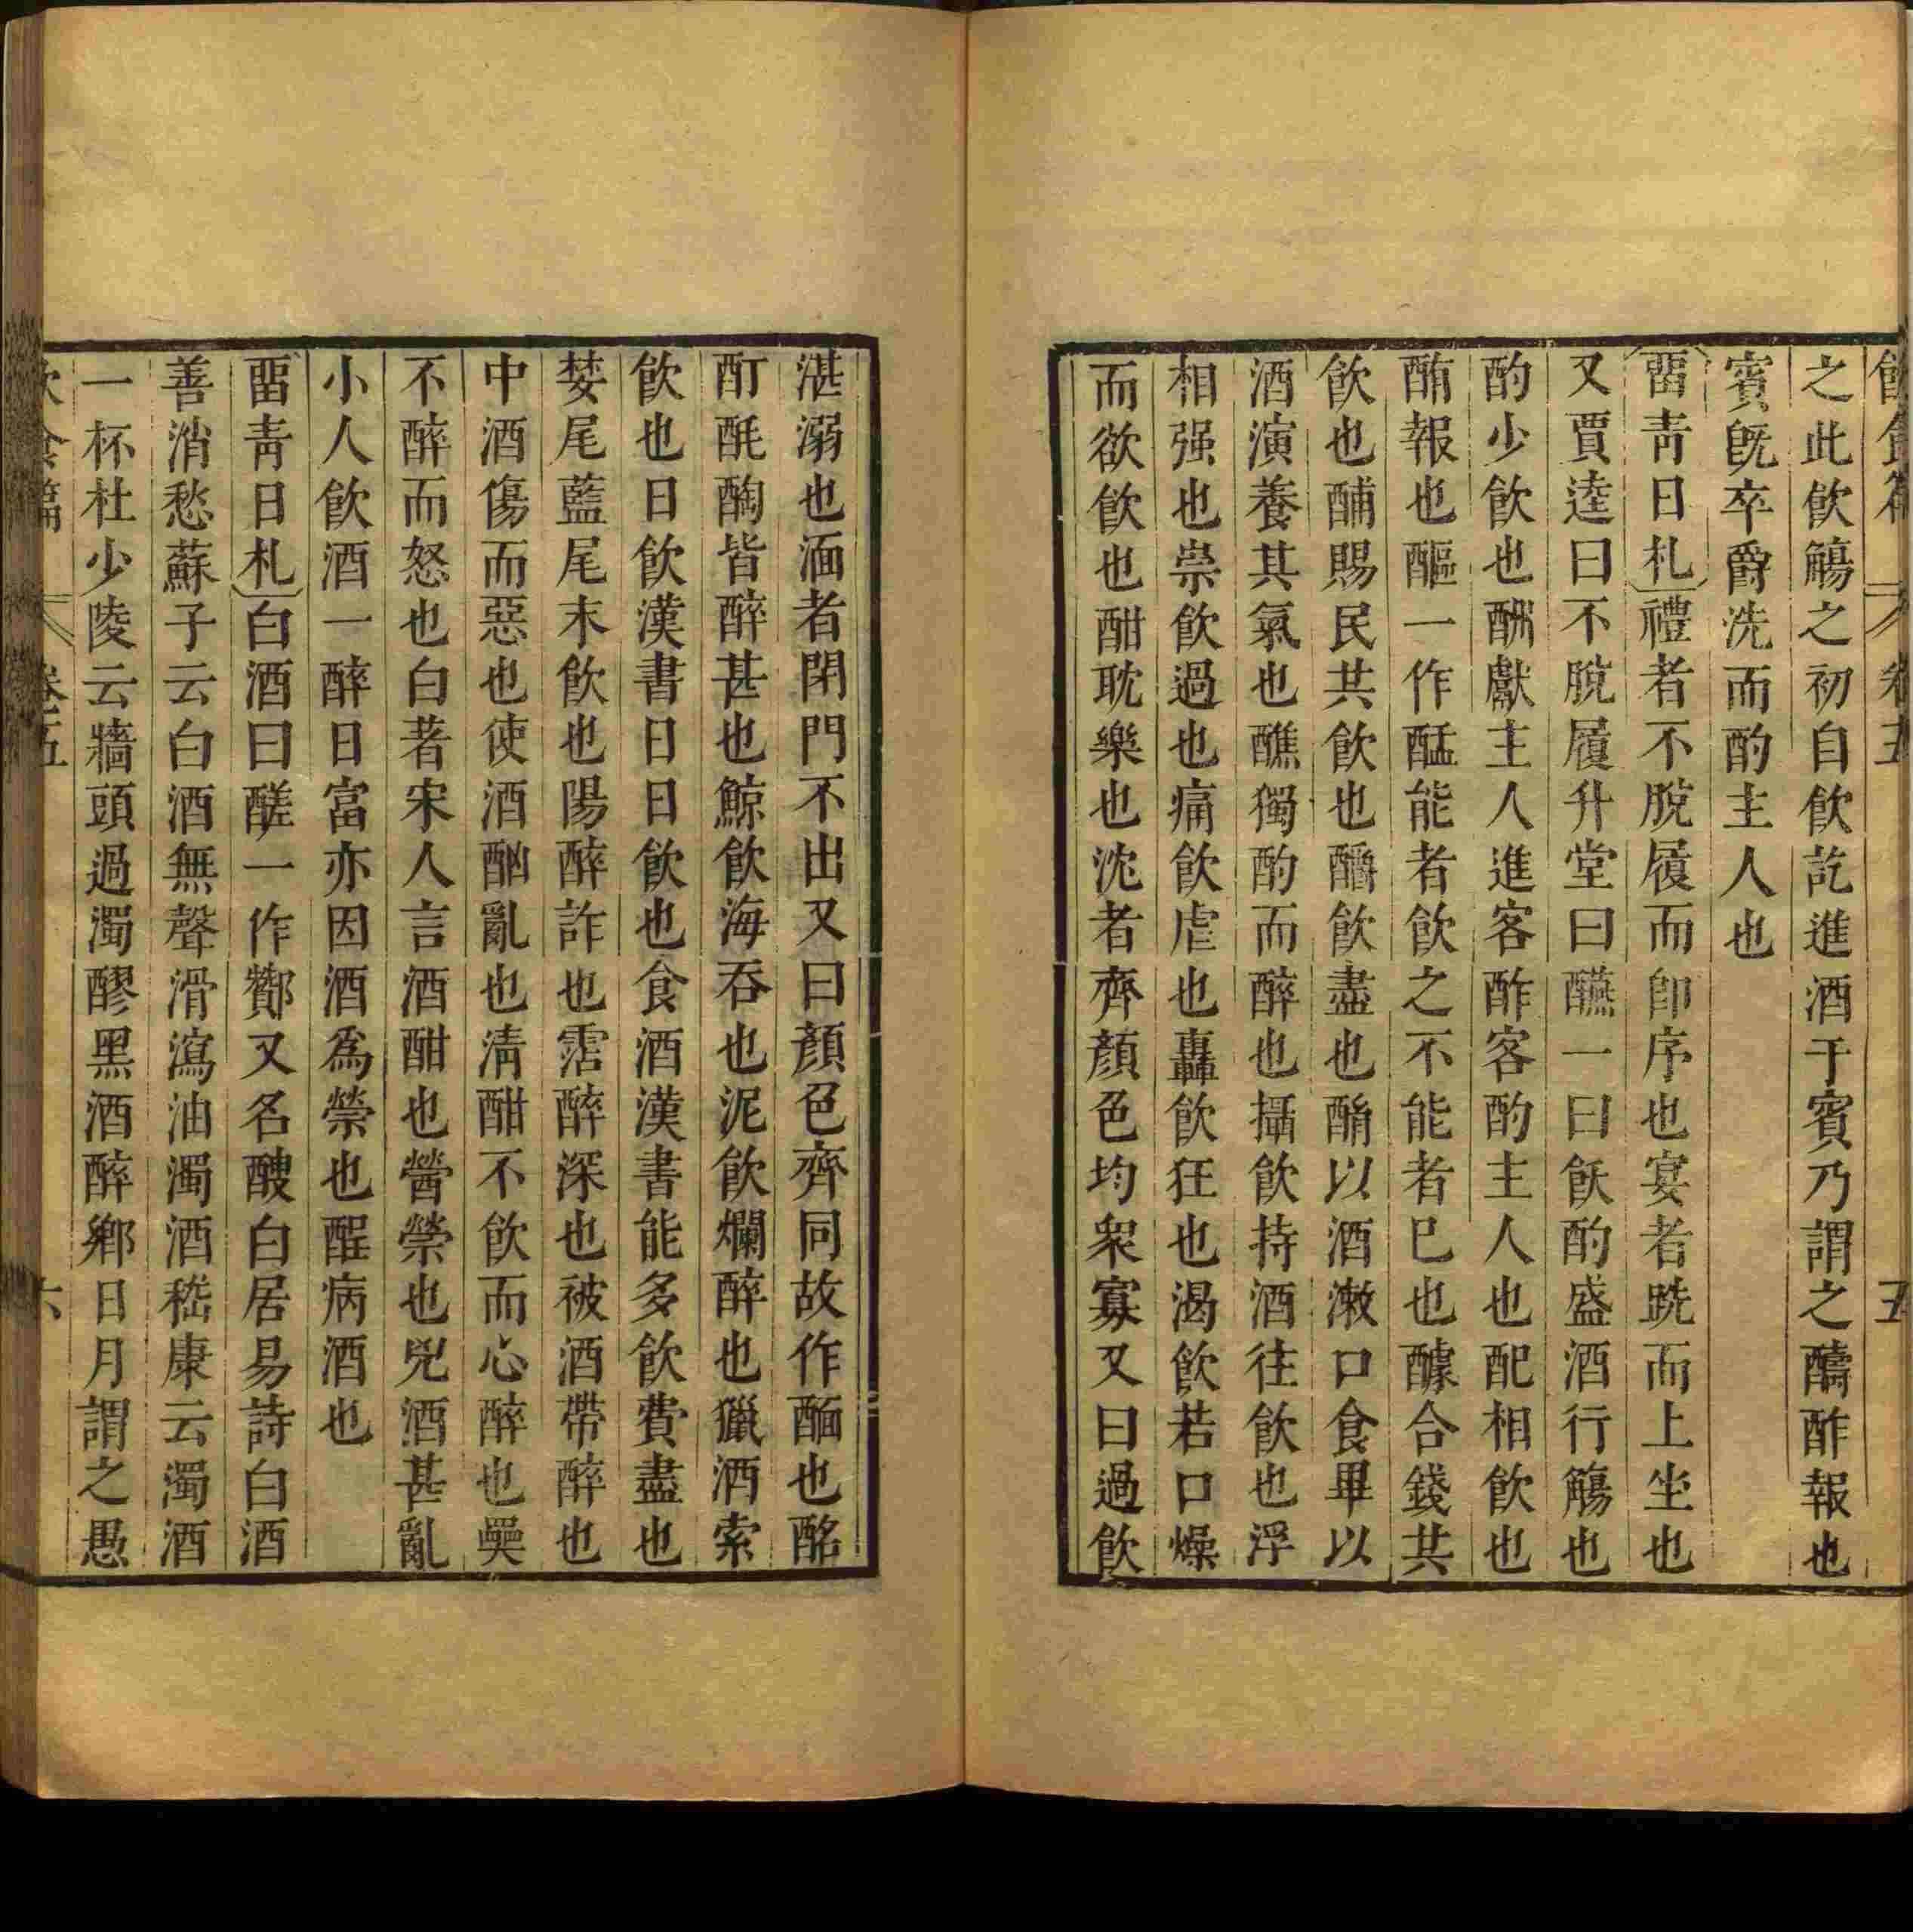 飲食篇 卷五 五
之此飲觴之初自飲訖進酒于賓乃謂之醻酢報也
賓旣卒爵洗而酌主人也
畱靑日札禮者不脫屨而卽序也宴者跣而上坐也
又賈逵曰不脫履升堂曰醼一曰飫酌盛酒行觴也
酌少飲也酬獻主人進客酢客酌主人也配相飲也
酭報也醧一作醞能者飲之不能者已也醵合錢共
飲也酺賜民共飲也釂飲盡也酳以酒漱口食畢以
酒演養其氣也醮獨酌而醉也攝飲持酒往飲也浮
相强也崇飲過也痛飲虐也轟飲狂也渴飲若口燥
而欲飲也酣耽樂也沈者齊顏色均衆寡又曰過飲
湛溺也湎者閉門不出又曰顏色齊同故作酾也酩
酊酕醄皆醉甚也鯨飲海吞也泥飲爛醉也獵酒索
飲也日飲漢書日日飲也食酒漢書能多飲費盡也
婪尾藍尾末飲也陽醉詐也霑醉深也被酒帶醉也
中酒傷而惡也使酒酗亂也淸酣不飲而心醉也奰
不醉而怒也白著宋人言酒酣也醟禜也兇酒甚亂
小人飲酒一醉日富亦因酒爲禜也酲病酒也
畱靑日札白酒曰醝一作酇又名醙白居易詩白酒
善消愁蘇子云白酒無聲滑瀉油濁酒嵇康云濁酒
一杯杜少陵云牆頭過濁醪黑酒醉鄕日月謂之愚
飲食篇 卷五 六